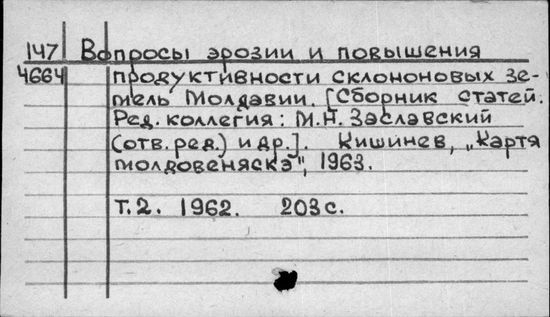 147 Вопросы эрозии и повышения
4664 продуктивности склононовых зе-
мель Молдавии. [Сборник статей.
Ред. коллегия: М.Н. Заславский
(отв. ред.) и др.]. Кишинев, „Картя
молдовеняскэ", 1963.
Т.2. 1962. 203 с.